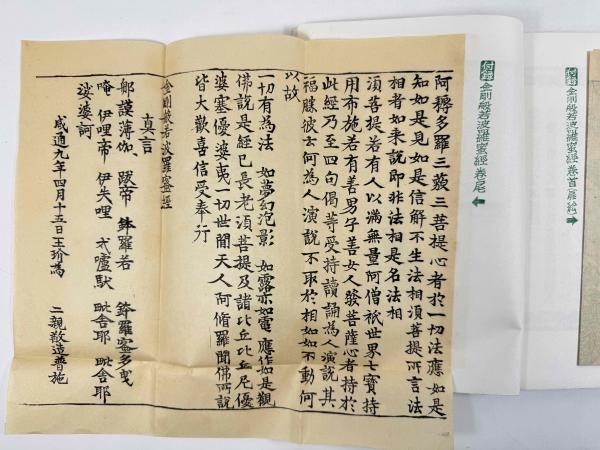 付録 金剛般若波羅蜜經 卷首(扉絵)
付録 金剛般若波羅蜜經 卷尾
阿耨多羅三藐三菩提心者於一切法應如是
知如是見如是信解不生法相須菩提所言法
相者如来說即非法相是名法相
須菩提若有人以滿無量阿僧祇世界七寶持
用布施若有善男子善女人發菩薩心者持於
此經乃至四句偈等受持讀誦為人演說其
福勝彼云何為人演說不取於相如如不動何
以故
一切有為法 如夢幻泡影 如露亦如電 應作如是觀
佛說是經已長老須菩提及諸比丘比丘尼優
婆塞優婆夷一切世閒天人阿脩羅聞佛所說
皆大歡喜信受奉行
金剛般若波羅蜜經
真言
那謨薄伽 䟦帝 鉢羅若 鉢羅蜜多曳
唵 伊哩帝 伊失哩 戍嚧馱 毗舍耶 毗舍耶
娑婆訶
咸通九年四月十五日王玠為 二親敬造普施